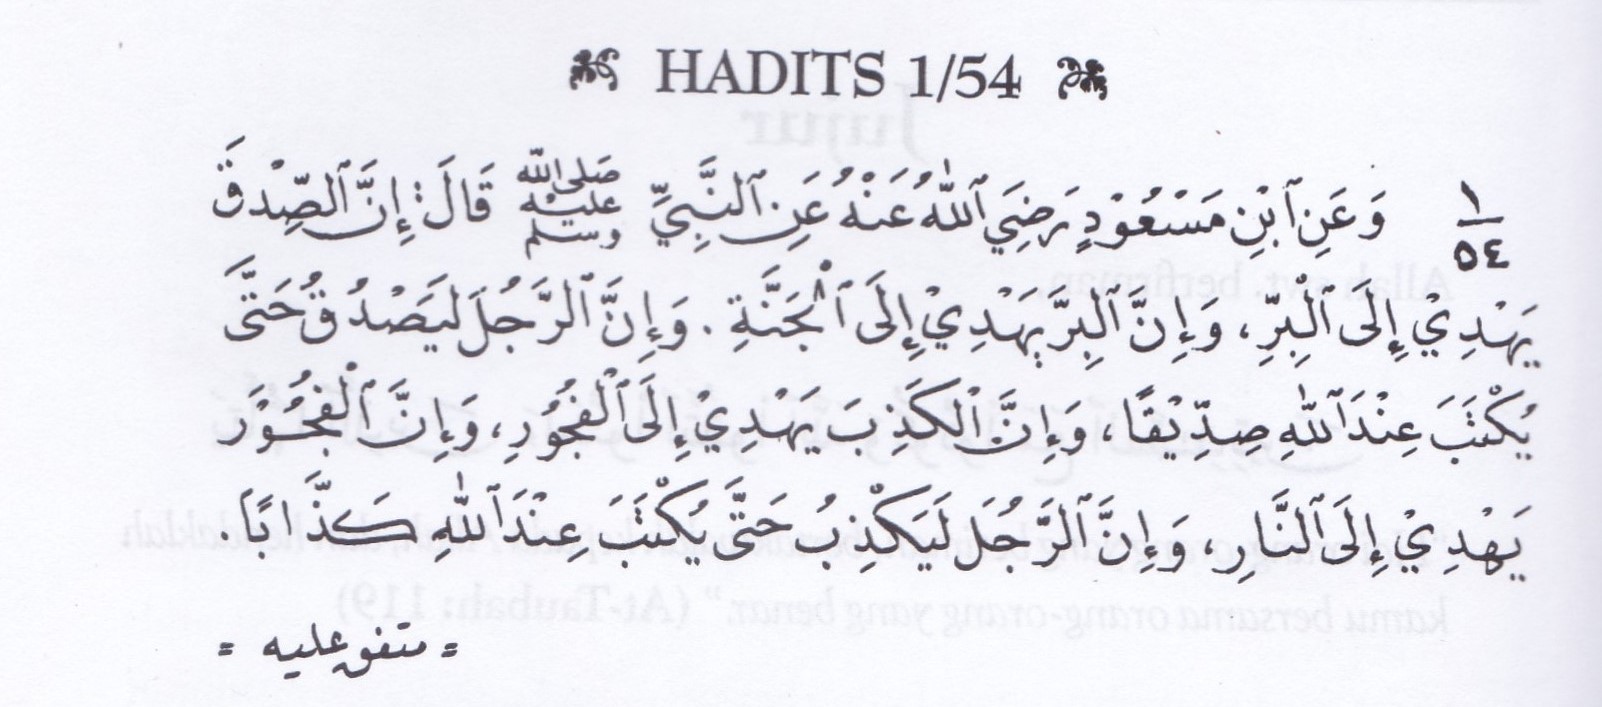 HADITS 1/54
١/٥٤ وَعَنِ ٱبْنِ مَسْعُوْدٍ رَضِيَ ٱللّٰهُ عَنْهُ عَنِ ٱلنَّبِيِّ صَلَّى الله عَلَيْهِ وسلم قَالَ: إِنَّ ٱلصِّدْقَ
يَهْدِيْ إِلَى ٱلْبِرِّ، وَإِنَّ ٱلْبِرَّ يَهْدِيْ إِلَى ٱلْجَنَّةِ. وَإِنَّ ٱلرَّجُلَ لَيَصْدُقُ حَتَّى
يُكْتَبَ عِنْدَ ٱللّٰهِ صِدِّيْقًا، وَإِنَّ ٱلْكَذِبَ يَهْدِيْ إِلَى ٱلْفُجُوْرِ، وَإِنَّ ٱلْفُجُوْرَ
يَهْدِيْ إِلَى ٱلنَّارِ، وَإِنَّ ٱلرَّجُلَ لَيَكْذِبُ حَتَّى يُكْتَبَ عِنْدَ ٱللّٰهِ كَذَّابًا.
= متفق عليه =